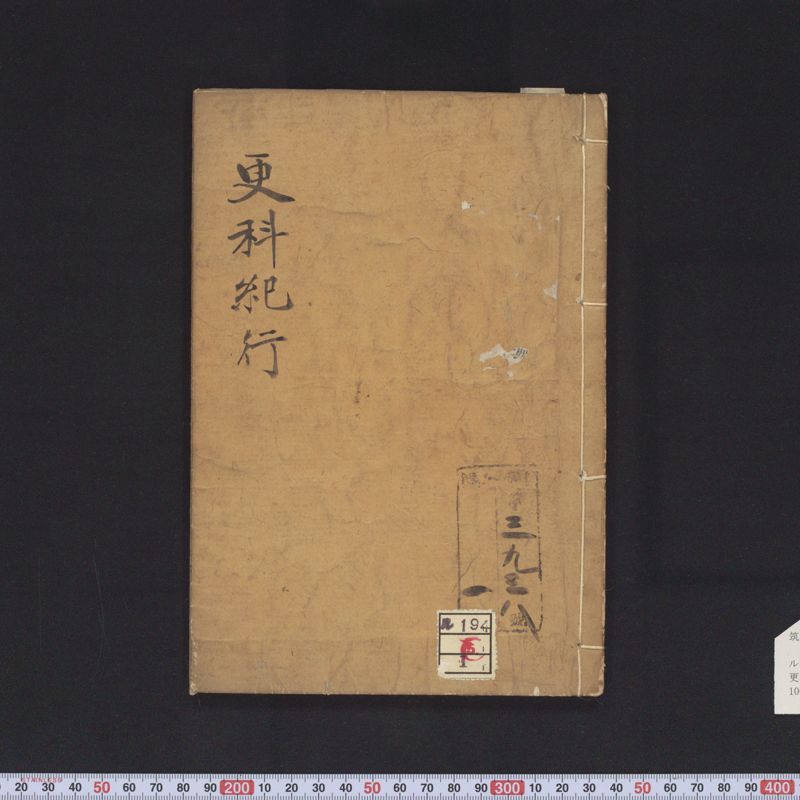 更科紀行
三九三八
一
ル 194
1
筑
ル
更
10
STAINLESS
20 30 40 50 60 70 80 90 200 10 20 30 40 50 60 70 80 90 300 10 20 30 40 50 60 70 80 90 400